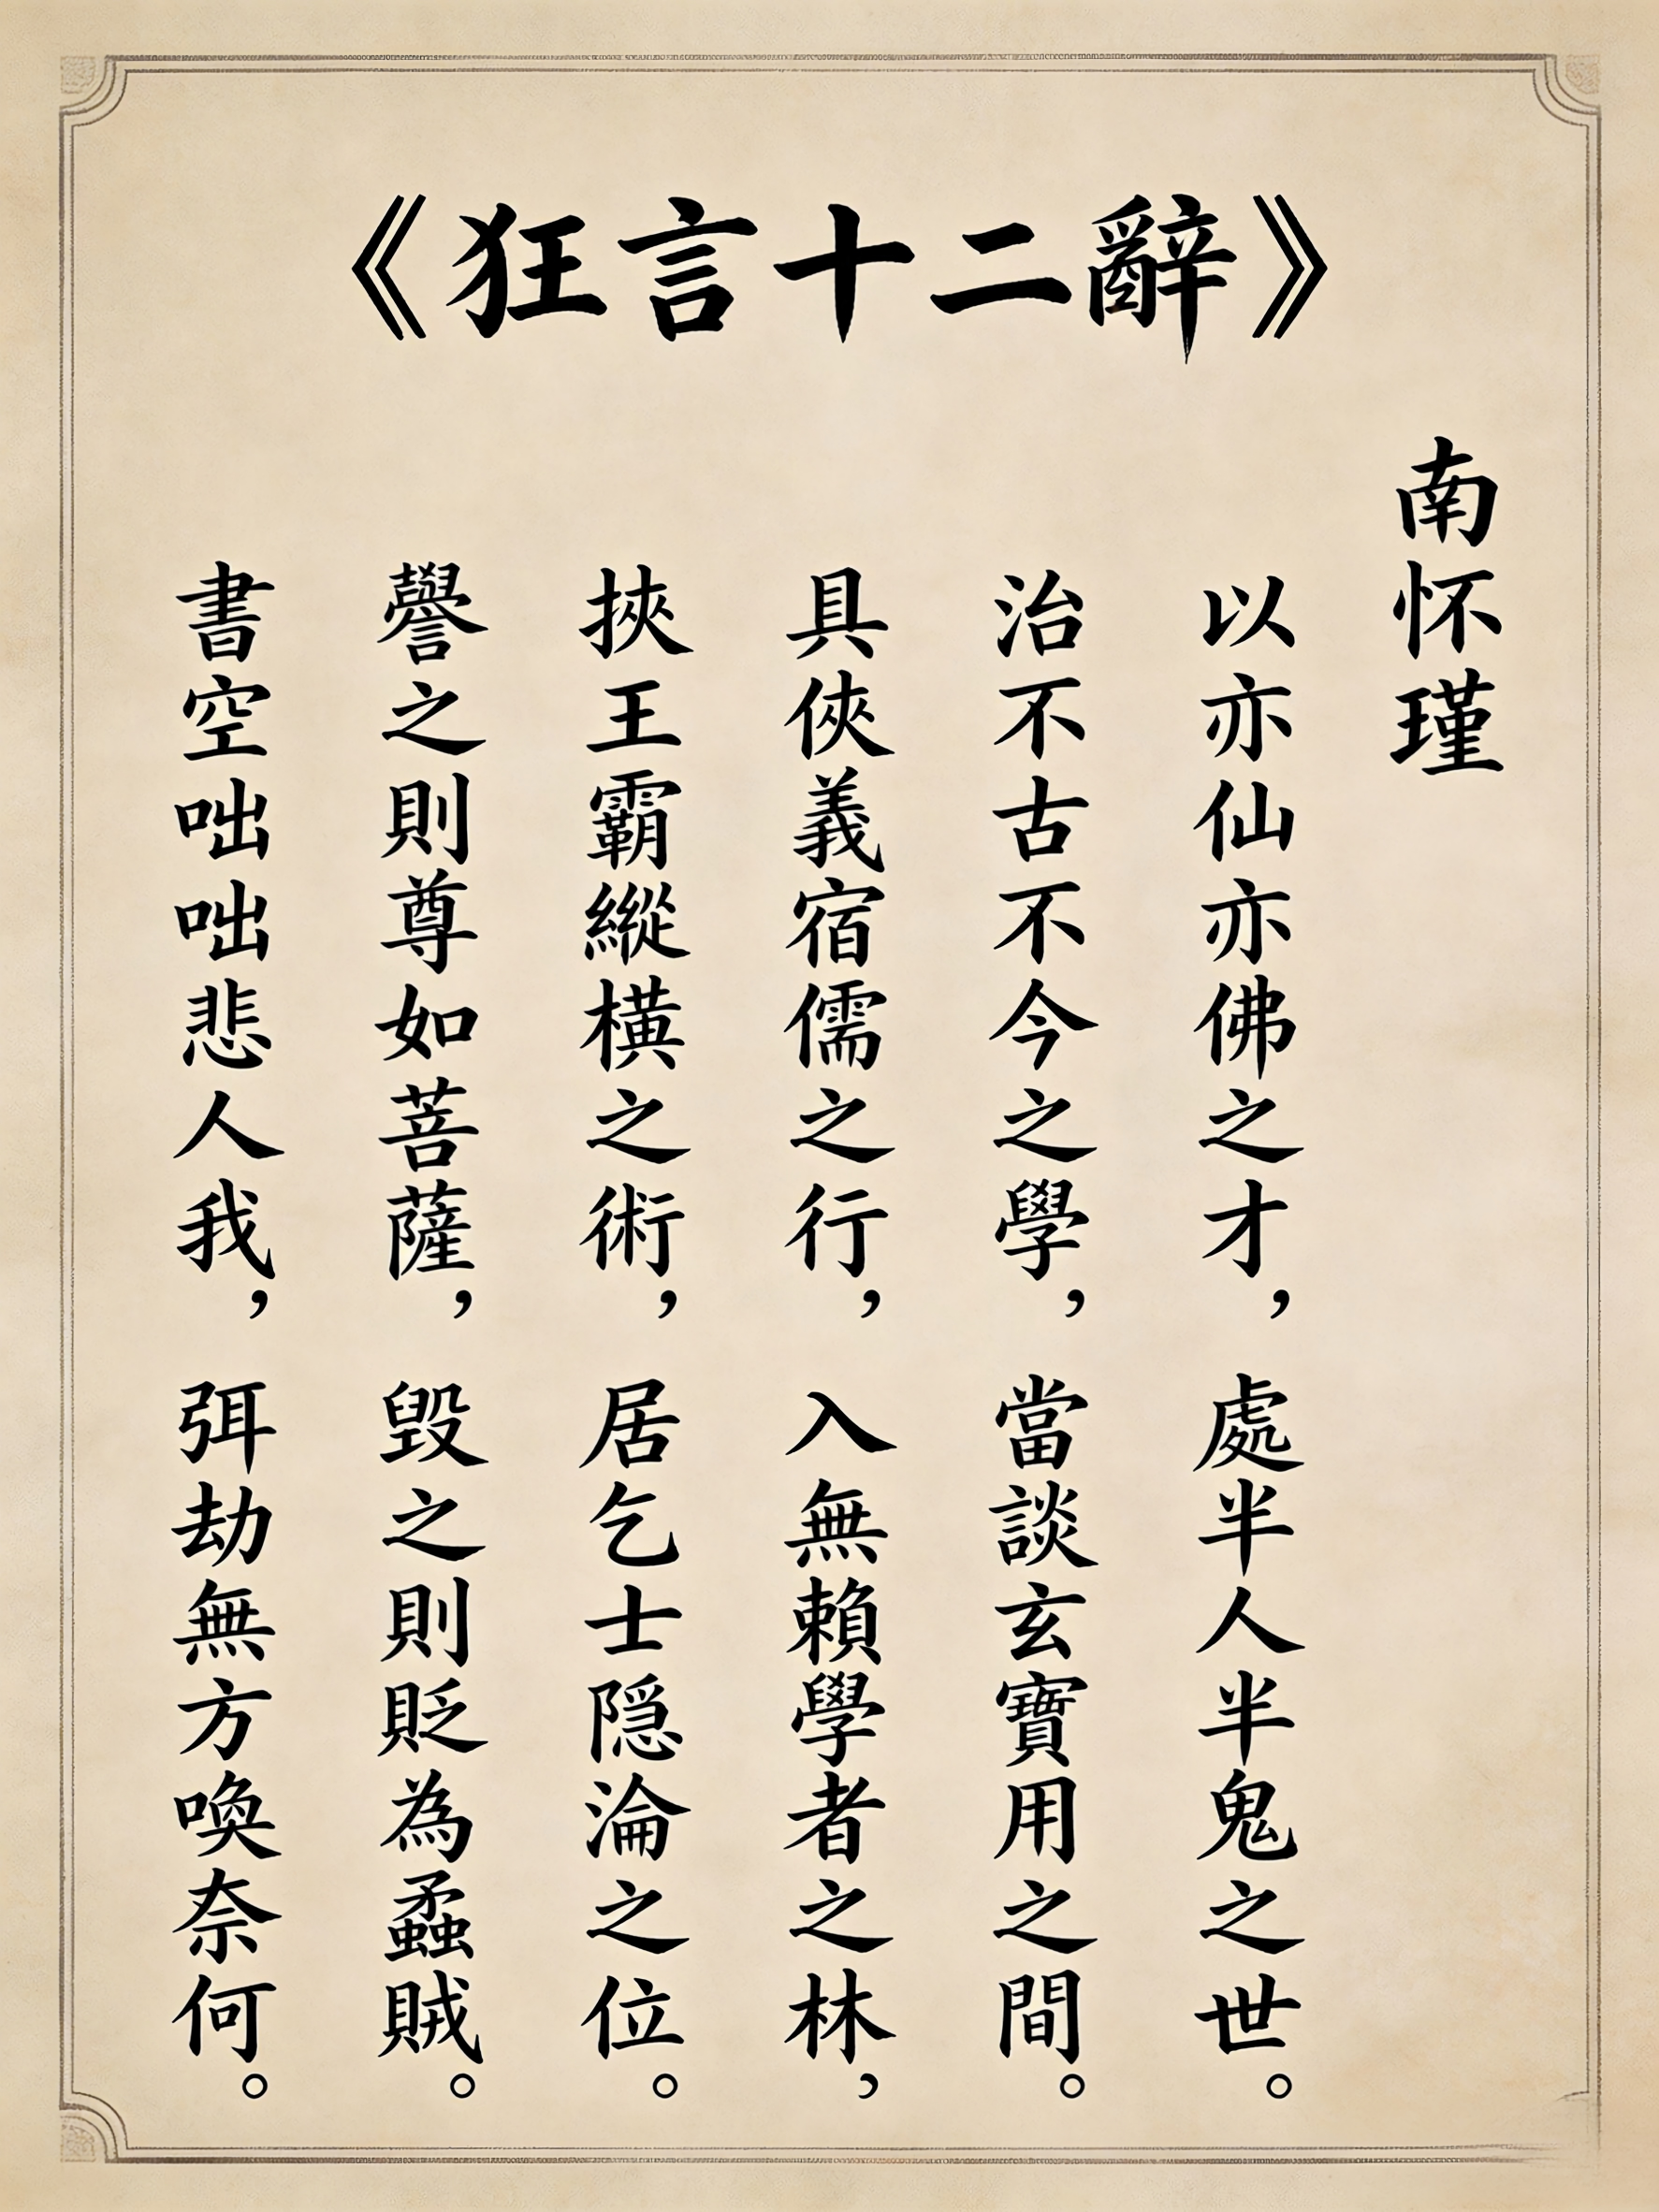 《狂言十二辭》
南怀瑾
以亦仙亦佛之才，處半人半鬼之世。
治不古不今之學，當談玄寶用之間。
具俠義宿儒之行，入無賴學者之林，
挾王霸縱橫之術，居乞士隠淪之位。
譽之則尊如菩薩，毀之則貶為蟊賊。
書空咄咄悲人我，弭劫無方喚奈何。